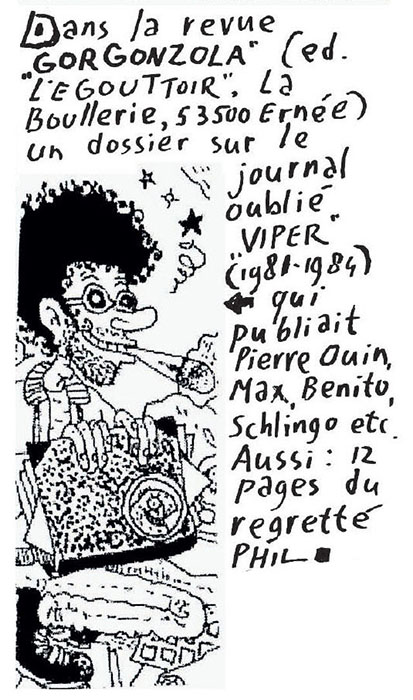 Dans la revue
"GORGONZOLA" (ed.
"L'EGOUTTOIR", La
Boullerie, 53500 Ernée)
un dossier sur le
journal
oublié
"VIPER"
(1981-1984)
qui
publiait
Pierre Ouin,
Max, Benito,
Schlingo etc.
Aussi : 12
pages du
regretté
PHIL